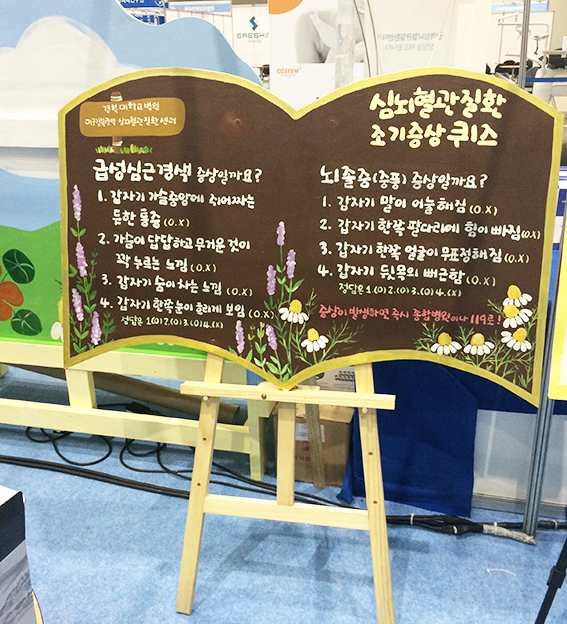 SRESHIN
OSSTEM
경북대학교병원
대구경북권역 심뇌혈관질환센터
급성심근경색 증상일까요?
1. 갑자기 가슴중앙에 쥐어짜는
듯한 통증 (O.X)
2. 가슴이 답답하고 무거운 것이
꽉 누르는 느낌 (O.X)
3. 갑자기 숨이 차는 느낌 (O.X)
4. 갑자기 한쪽 눈이 흘리게 보임 (O.X)
정답은 1.(O) 2.(O) 3.(O) 4.(X)
심뇌혈관질환
조기증상 퀴즈
뇌졸중(중풍) 증상일까요?
1. 갑자기 말이 어눌해짐 (O.X)
2. 갑자기 한쪽 팔다리에 힘이 빠짐(O.X)
3. 갑자기 한쪽 얼굴이 무표정해짐(O.X)
4. 갑자기 뒷목의 뻐근함 (O.X)
정답은 1.(O) 2.(O) 3.(O) 4.(X)
증상이 발생하면 즉시 종합병원이나 119로!